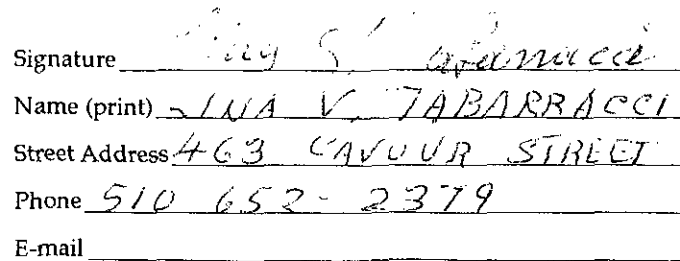 Signature
Name (print) INA V. TABARRACCI
Street Address 463 CAVOUR STREET
Phone 510 652-2379
E-mail